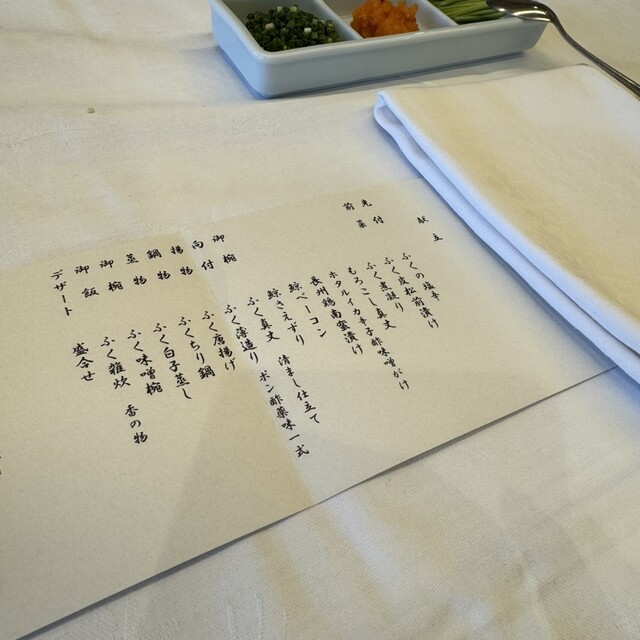 献立
先付 ふくの塩辛
ふく皮松前漬け
前菜 ふく煮凝り
もろこし真丈
ホタルイカ辛子酢味噌がけ
長州鶏南蛮漬け
鯨ベーコン
鯨さえずり
御椀 ふく真丈 清まし仕立て
向付 ふく薄造り ポン酢薬味一式
揚物 ふく唐揚げ
鍋物 ふくちり鍋
蒸物 ふく白子蒸し
御椀 ふく味噌椀
御飯 ふく雑炊 香の物
デザート 盛合せ